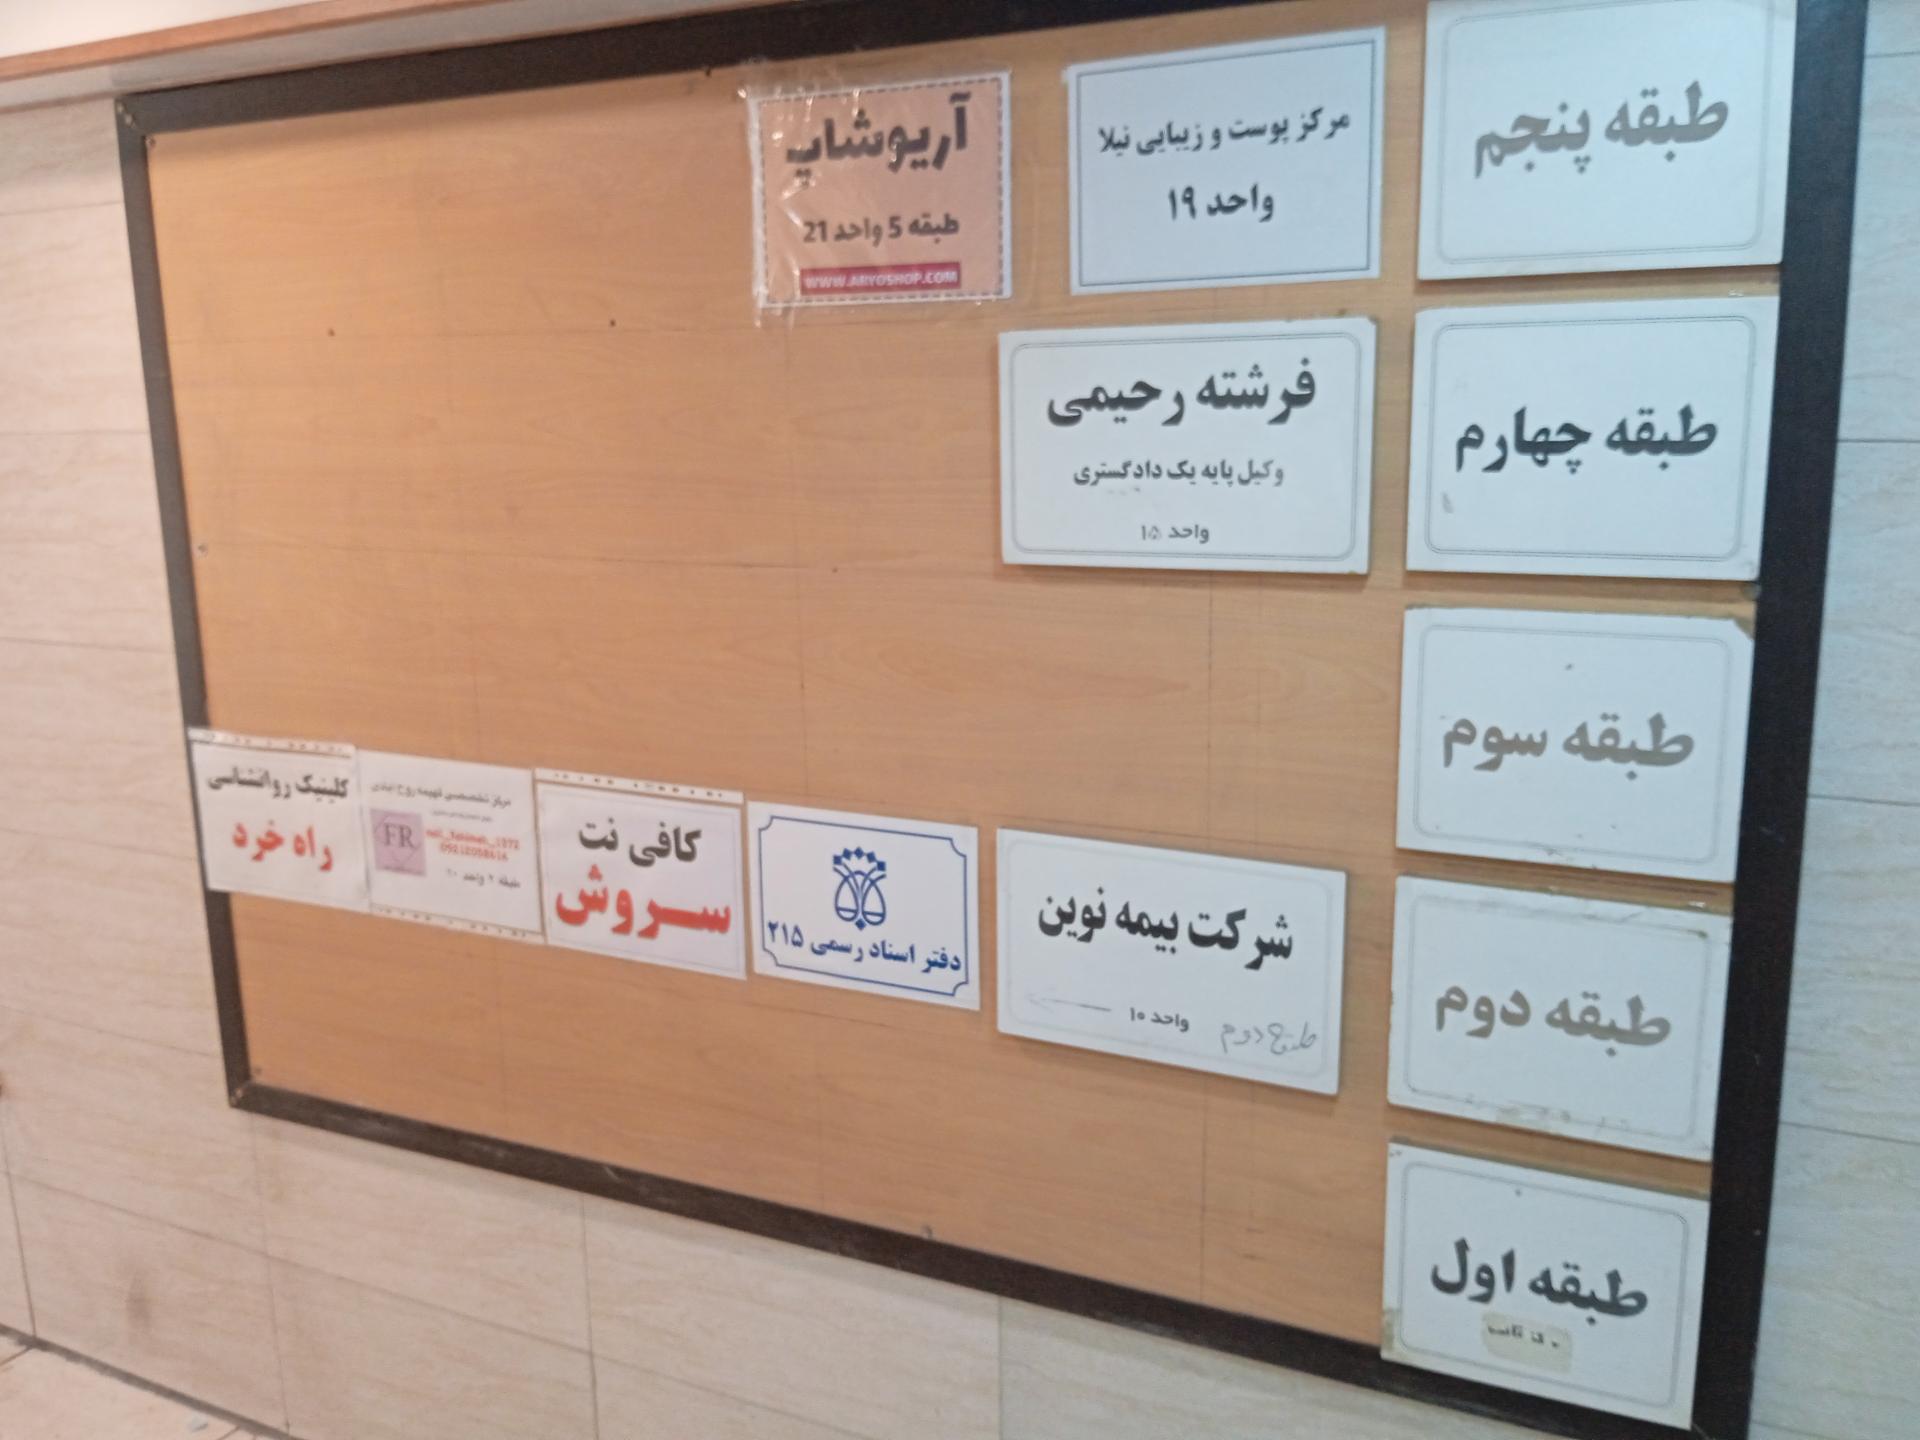 طبقه پنجم
مرکز پوست و زیبایی نیلا
واحد ۱۹
آریوشاپ
طبقه 5 واحد 21
WWW.ARYOSHOP.COM
طبقه چهارم
فرشته رحیمی
وکیل پایه یک دادگستری
واحد ۱۵
طبقه سوم
طبقه دوم
شرکت بیمه نوین
واحد ۱۰
دوم
دفتر اسناد رسمی ۲۱۵
کافی نت
سروش
مرکز تخصصی فهیمه روح
FR
طبقه ۲ واحد ۲۰
کلینیک روانشناسی
راه خرد
طبقه اول